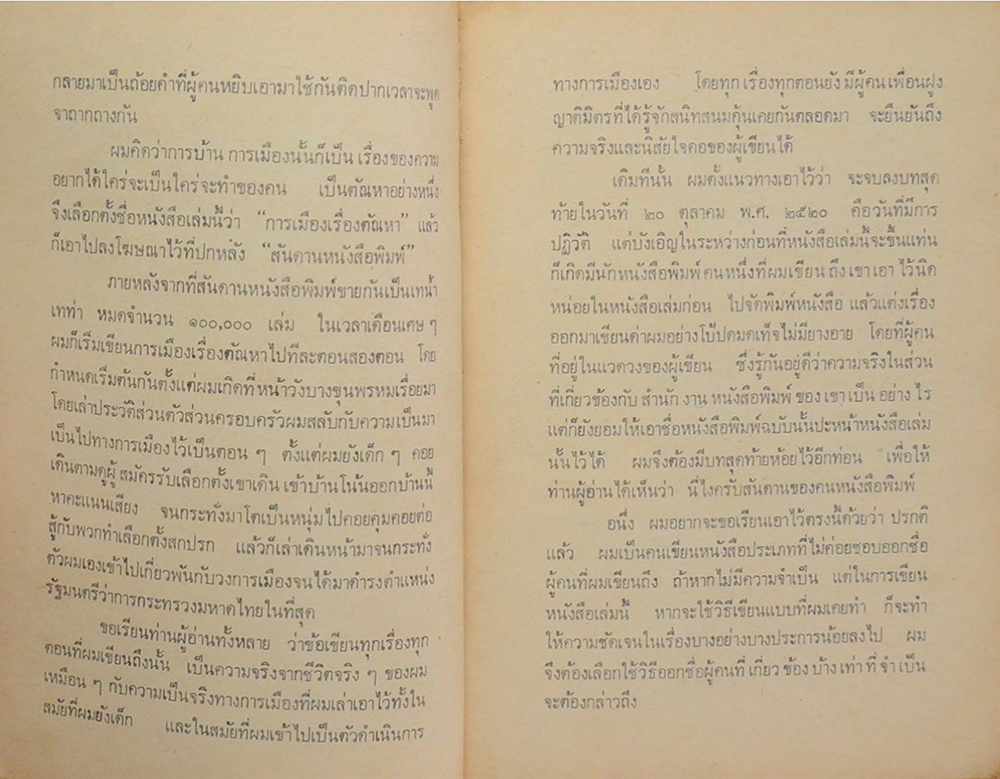 กลายมาเป็นถ้อยคำที่ผู้คนหยิบเอามาใช้กันติดปากเวลาจะพูด
จาถากถางกัน
ผมคิดว่าการบ้าน การเมืองนั้นก็เป็น เรื่องของความ
อยากได้ใคร่จะเป็นใคร่จะทำของคน เป็นตัณหาอย่างหนึ่ง
จึงเลือกตั้งชื่อหนังสือเล่มนี้ว่า “การเมืองเรื่องตัณหา” แล้ว
ก็เอาไปลงโฆษณาไว้ที่ปกหลัง “สันดานหนังสือพิมพ์”
ภายหลังจากที่สันดานหนังสือพิมพ์ขายกันเป็นเทน้ำ
เทท่า หมดจำนวน ๑๐๐,๐๐๐ เล่ม ในเวลาเดือนเศษ ๆ
ผมก็เริ่มเขียนการเมืองเรื่องตัณหาไปทีละตอนสองตอน โดย
กำหนดเริ่มต้นกันตั้งแต่ผมเกิดที่หน้าวังบางขุนพรหมเรื่อยมา
โดยเล่าประวัติส่วนตัวส่วนครอบครัวผมสลับกับความเป็นมา
เป็นไปทางการเมืองไว้เป็นตอน ๆ ตั้งแต่ผมยังเด็ก ๆ คอย
เดินตามดูผู้ สมัครรับเลือกตั้งเขาเดิน เข้าบ้านโน้นออกบ้านนี้
หาคะแนนเสียง จนกระทั่งมาโตเป็นหนุ่มไปคอยคุมคอยต่อ
สู้กับพวกทำเลือกตั้งสกปรก แล้วก็เล่าเดินหน้ามาจนกระทั่ง
ตัวผมเองเข้าไปเกี่ยวพันกับวงการเมืองจนได้มาดำรงตำแหน่ง
รัฐมนตรีว่าการกระทรวงมหาดไทยในที่สุด
ขอเรียนท่านผู้อ่านทั้งหลาย ว่าข้อเขียนทุกเรื่องทุก
ตอนที่ผมเขียนถึงนั้น เป็นความจริงจากชีวิตจริง ๆ ของผม
เหมือน ๆ กับความเป็นจริงทางการเมืองที่ผมเล่าเอาไว้ทั้งใน
สมัยที่ผมยังเด็ก และในสมัยที่ผมเข้าไปเป็นตัวดำเนินการ
ทางการเมืองเอง โดยทุก เรื่องทุกตอนยัง มีผู้คน เพื่อนฝูง
ญาติมิตรที่ได้รู้จักสนิทสนมคุ้นเคยกันตลอดมา จะยืนยันถึง
ความจริงและนิสัยใจคอของผู้เขียนได้
เดิมทีนั้น ผมตั้งแนวทางเอาไว้ว่า จะจบลงบทสุด
ท้ายในวันที่ ๒๐ ตุลาคม พ.ศ. ๒๕๒๐ คือวันที่มีการ
ปฏิวัติ แต่บังเอิญในระหว่างก่อนที่หนังสือเล่มนี้จะขึ้นแท่น
ก็เกิดมีนักหนังสือพิมพ์ คนหนึ่งที่ผมเขียน ถึง เขา เอา ไว้ นิด
หน่อยในหนังสือเล่มก่อน ไปจัดพิมพ์หนังสือ แล้วแต่งเรื่อง
ออกมาเขียนด่าผมอย่างโป้ปดมดเท็จไม่มียางอาย โดยที่ผู้คน
ที่อยู่ในแวดวงของผู้เขียน ซึ่งรู้กันอยู่ดีว่าความจริงในส่วน
ที่เกี่ยวข้องกับ สำนัก งาน หนังสือพิมพ์ ของ เขา เป็น อย่าง ไร
แต่ก็ยังยอมให้เอาชื่อหนังสือพิมพ์ฉบับนั้นปะหน้าหนังสือเล่ม
นั้นไว้ได้ ผมจึงต้องมีบทสุดท้ายห้อยไว้อีกท่อน เพื่อให้
ท่านผู้อ่านได้เห็นว่า นี่ไงครับสันดานของคนหนังสือพิมพ์
อนึ่ง ผมอยากจะขอเรียนเอาไว้ตรงนี้ด้วยว่า ปรกติ
แล้ว ผมเป็นคนเขียนหนังสือประเภทที่ไม่ค่อยชอบออกชื่อ
ผู้คนที่ผมเขียนถึง ถ้าหากไม่มีความจำเป็น แต่ในการเขียน
หนังสือเล่มนี้ หากจะใช้วิธีเขียนแบบที่ผมเคยทำ ก็จะทำ
ให้ความชัดเจนในเรื่องบางอย่างบางประการน้อยลงไป ผม
จึงต้องเลือกใช้วิธีออกชื่อผู้คนที่ เกี่ยว ข้อง บ้าง เท่า ที่ จำ เป็น
จะต้องกล่าวถึง